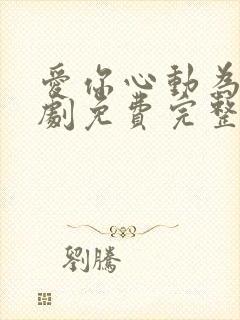 愛你心動為
劇免費完整
劉騰